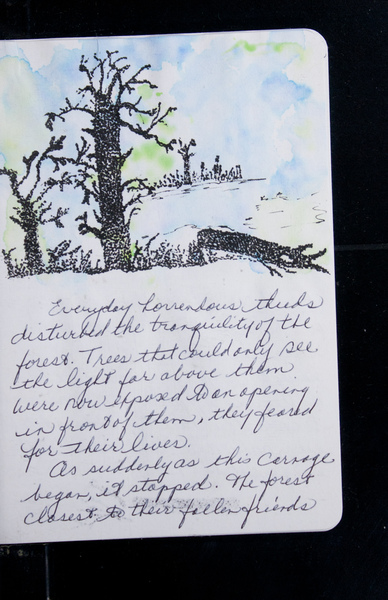 Everyday horrendous thuds
disturbed the tranquility of the
forest. Trees that could only see
the light far above them
were now exposed to an opening
in front of them, they feared
for their lives.
As suddenly as this carnage
began, it stopped. The forest
closest to their fallen friends